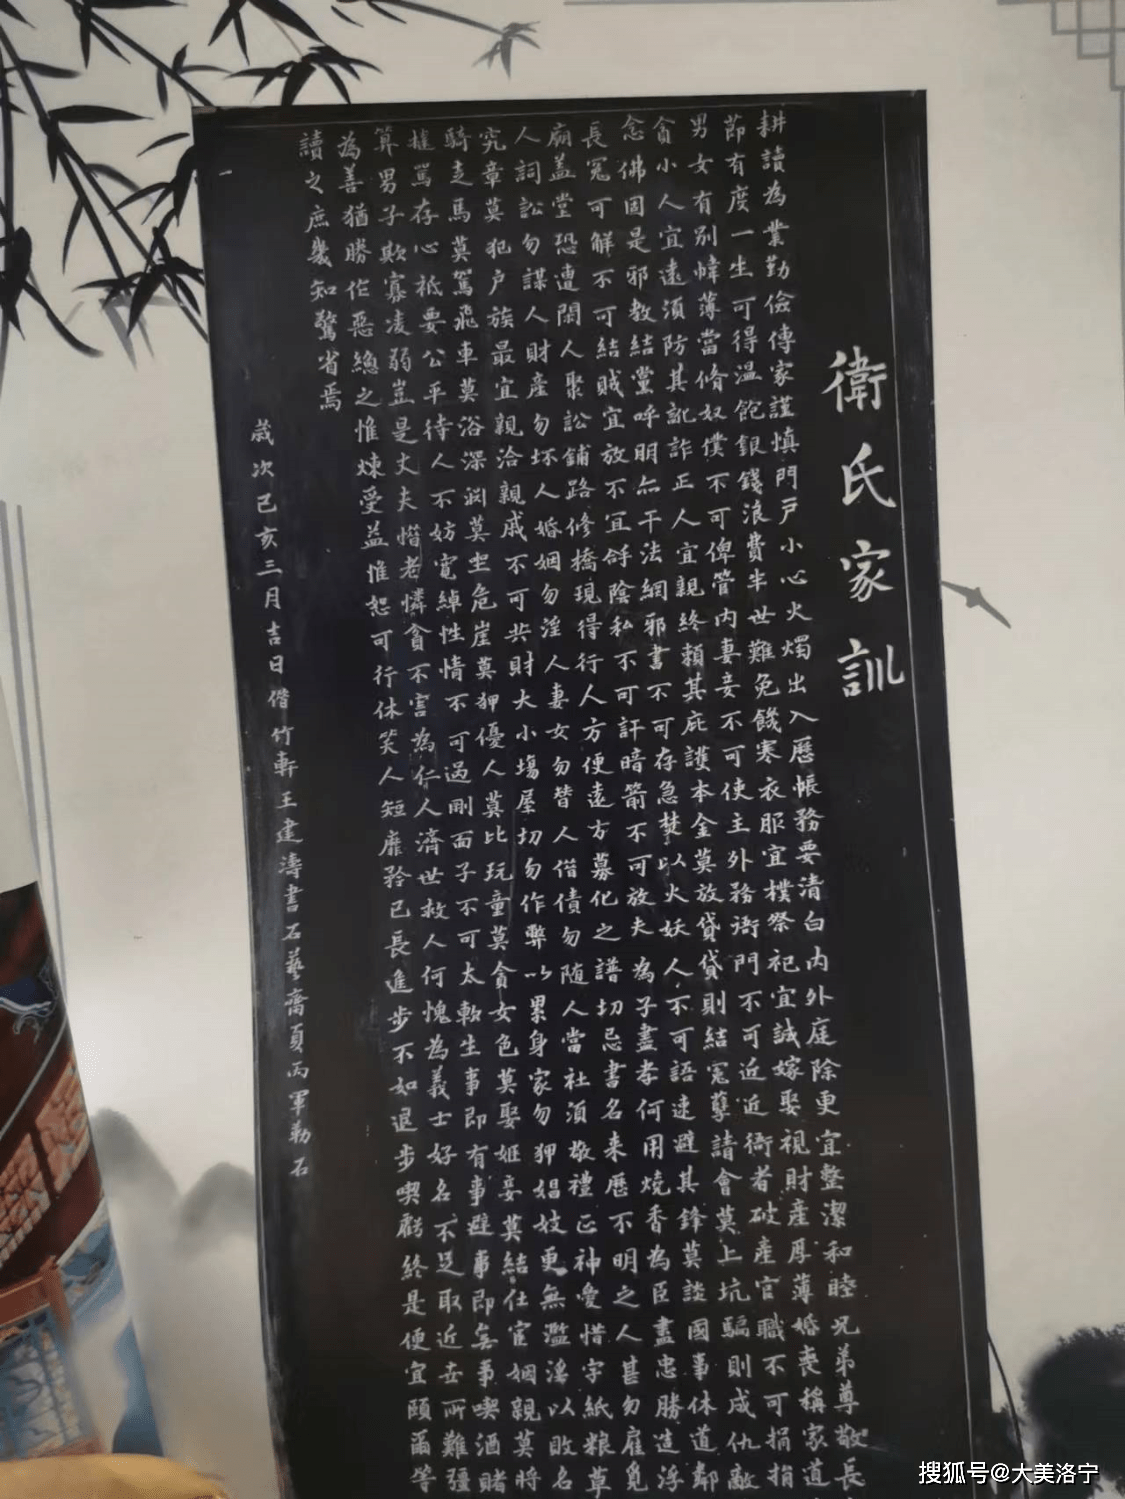 衛氏家訓
耕讀為業勤儉傳家謹慎門戶小心火燭出入歷帳務要清白内外庭除更宜整潔和睦兄弟尊敬長
節有度一生可得溫飽銀錢浪費半世難免饑寒衣服宜樸祭祀宜誠嫁娶視財產厚薄婚喪稱家道
男女有別幃薄當脩奴僕不可俾管内妻妾不可使主外務衙門不可近近衙者破產官職不可捐捐
貪小人宜遠須防其訛詐正人宜親終賴其庇護本金莫放貸貸則結冤孽請會莫上坑騙則成仇敵
念佛固是邪教結黨呼明亦干法網邪書不可存急焚以火妖人不可語速避其鋒莫談國事休道鄰
長冤可解不可結賊宜放不宜陰私不可訐暗箭不可放夫為子盡孝何用燒香為臣盡忠勝造浮
廟蓋堂恐遭閑人聚訟鋪路修橋現得行人方便遠方募化之譜切忌書名来歷不明之人甚勿雇覓
人詞訟勿謀人財産勿坏人婚姻勿淫人妻女勿替人借債勿随人當社須敬禮正神愛惜字紙粮草
究章莫犯户族最宜親洽親戚不可共財大小塲屋切勿作弊以累身家勿狎娼妓更無濫淫以敗名
騎走馬莫駕飛車莫浴深渕莫坐危崖莫狎優人莫比玩童莫貪女色莫娶姬妾莫結仕宦姻親莫將
罵存心祗要公平待人不妨寬綽性情不可過剛面子不可太軟生事即有事避事即無事喫酒賭
算男子欺寡凌弱豈是丈夫惜老憐貧不害為仁人濟世救人何愧為義士好名不足取近妄所難彊
為善猶勝作惡總之惟煉受益惟恕可行休笑人短靡矜己長進步不如退步喫虧終是便宜頤爾等
讀之庶幾知驚省焉
歲次己亥三月吉日偕竹軒王建濤書石藝齋頁丙軍勒石
搜狐号@大美洛宁